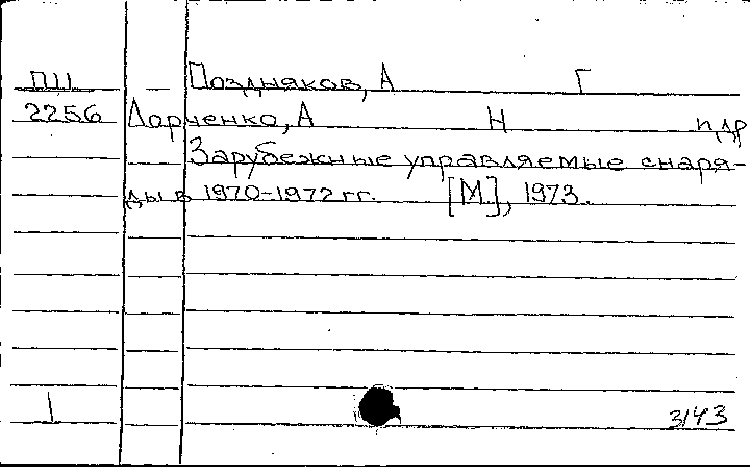 ПШ Поздняков, А Г
2256 Ларченко, А Н и др
Зарубежные управляемые снаря-
ды в 1970-1972 гг. [М.], 1973.
1 3143